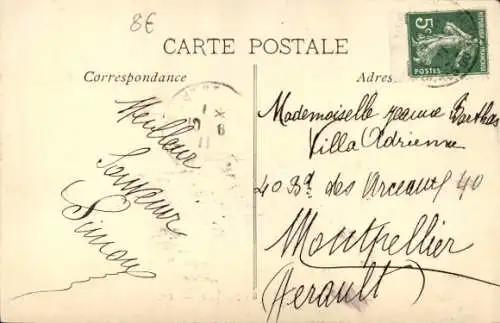 8€
5c
POSTES
CARTE POSTALE
Correspondance
Meilleur
Souvenir
Simon
Mademoiselle Jeanne Barthas
Villa Adrienne
40 Bd des Arceaux 40
Montpellier
Herault